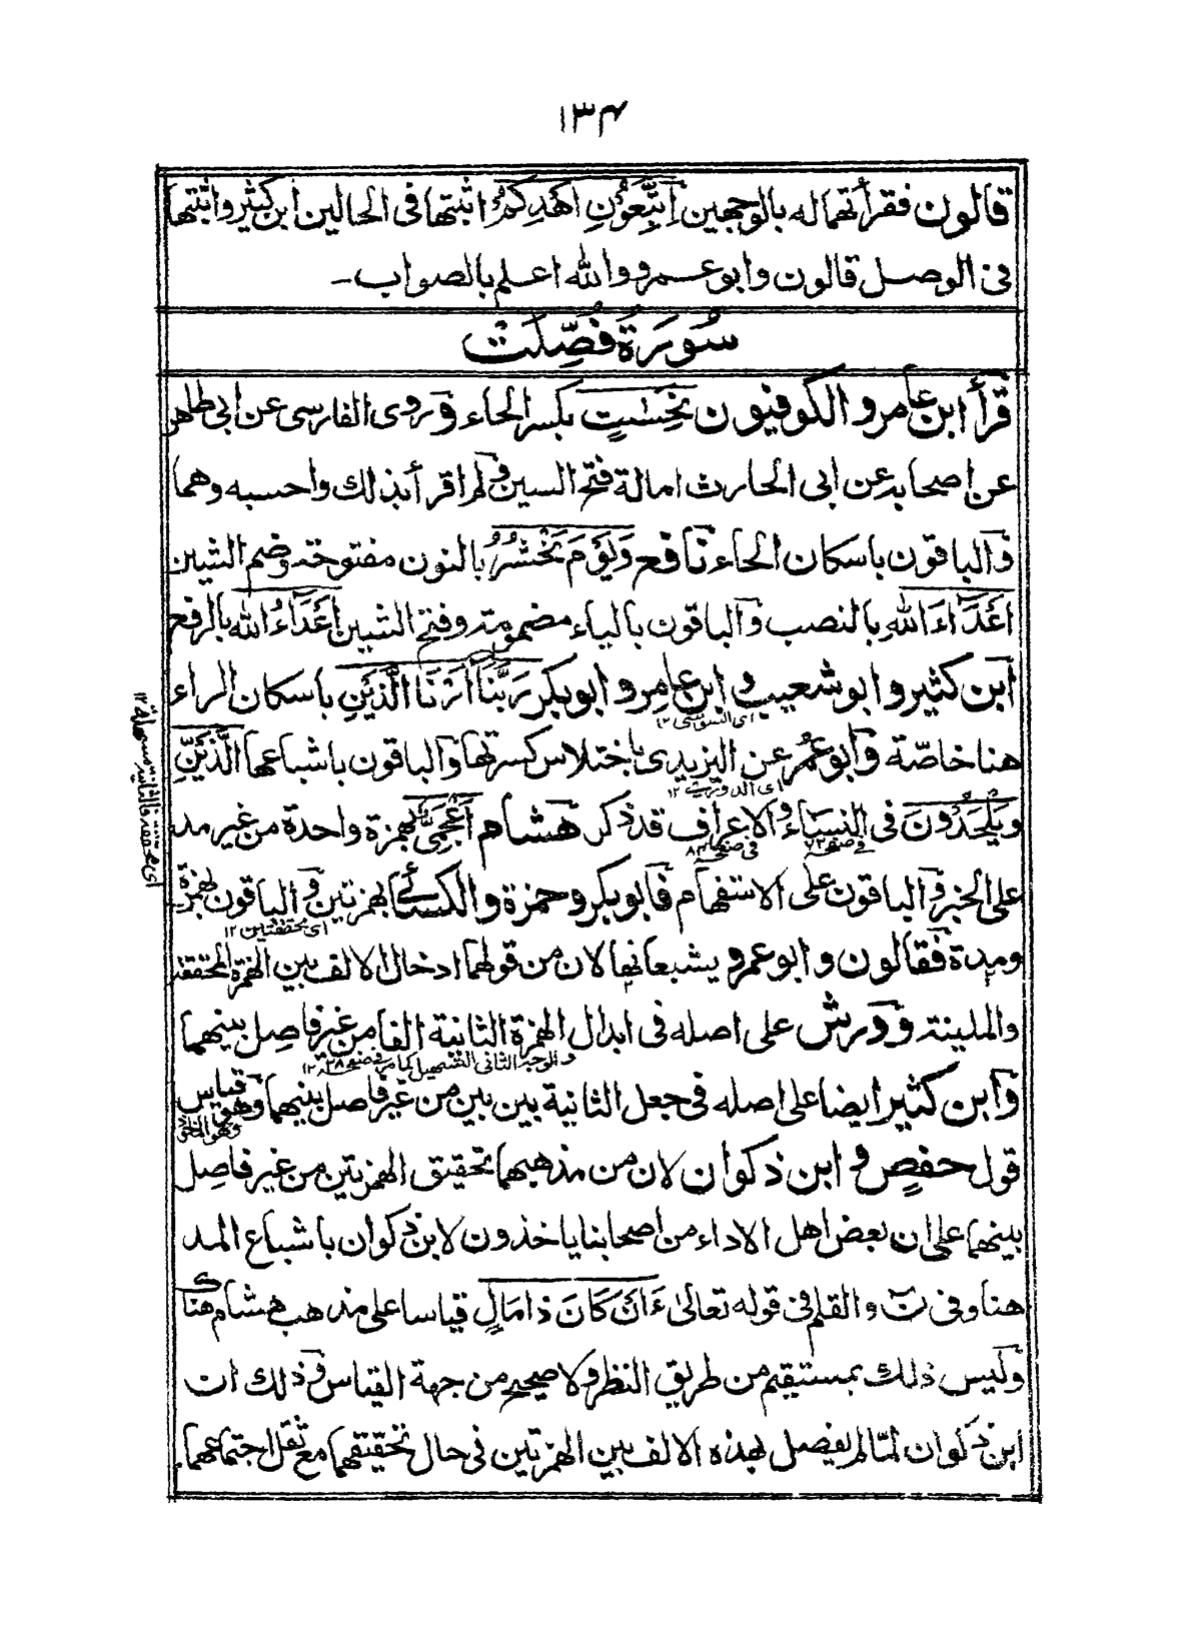 ١٣٤
قالون فقرأتهما له بالوجهين اتَّبِعُوْنِ اَهْدِكُمْ اثبتها فى الحالين ابن كثير واثبتها
فى الوصل قالون وابو عمرو والله اعلم بالصواب-
سُوْرَةُ فُصِّلَتْ
قرأ ابن عامر والكوفيون نَحِسَاتٍ بكسر الحاء وروى الفارسى عن ابى طاهر
عن اصحابه عن ابى الحارث امالة فتح السين ولم اقرأ بذلك واحسبه وهما
والباقون باسكان الحاء نافع وَيَوْمَ نَحْشُرُ بالنون مفتوحة وضم الشين
اَعْدَاءَ اللهِ بالنصب والباقون بالياء مضمومة وفتح الشين اَعْدَاءُ الله بالرفع
ابن كثير وابو شعيب وابن عامر وابو بكر رَبَّنَا اَرْنَا الَّذَيْنِ باسكان الراء
اى السوسى ١٢
هنا خاصّة وابو عمر عن اليزيدى باختلاس كسرتها والباقون باشباعها الَّذَيْنِّ
اى الدورى ١٢
وَيُلْحِدُوْنَ فى النساء والاعراف قد ذكر هشام اَعْجَمِىٌّ بهمزة واحدة من غير مد
فى صفحة فى صفحة
على الخبر والباقون على الاستفهام فابو بكر وحمزة والكسائى بهمزتين والباقون بهمزة
اى محققتين ١٢
اى محققة فالثانية مسهلة ١٢
ومدة فقالون وابو عمرو يشبعانها لان من قولهما ادخال الالف بين الهمزة المحققة
والملينة وورش على اصله فى ابدال الهمزة الثانية الفا من غير فاصل بينهما
والوجه الثانى التسهيل كما مر فى صفحة
وابن كثير ايضا على اصله فى جعل الثانية بين بين من غير فاصل بينهما وهو قياس
قول حفص وابن ذكوان لان من مذهبهما تحقيق الهمزتين من غير فاصل
بينهما على ان بعض اهل الاداء من اصحابنا ياخذون لابن ذكوان باشباع المد
هنا وفى نٓ والقلم فى قوله تعالىٰ ءَاَنْ كَانَ ذَا مَالٍ قياسا على مذهب هشام هناك
وليس ذلك بمستقيم من طريق النظر ولا صحيح من جهة القياس وذلك ان
ابن ذكوان لمّا لم يفصل بهذه الالف بين الهمزتين فى حال تحقيقهما مع ثقل اجتماعهما